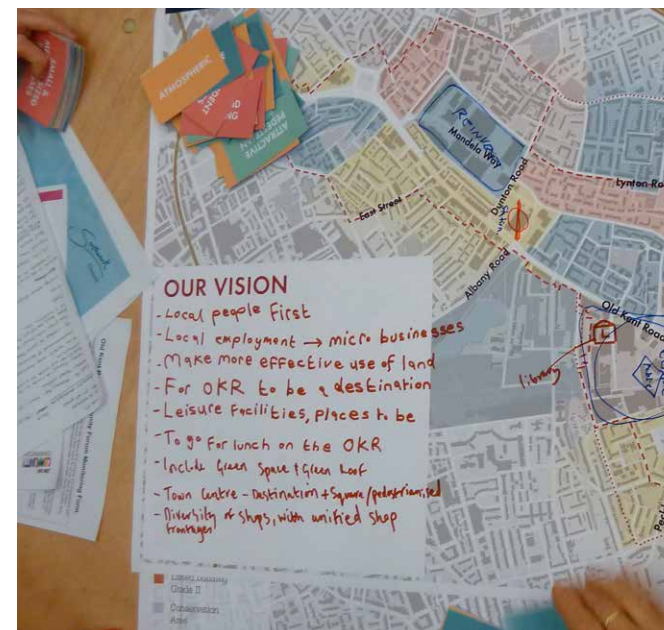 SMALL &
SIZED
ATMOSPHERIC
ATTRACTIVE
Mandela Way
Dunton Road
Lynton Ro
East Street
Albany Road
Old Kent Road
library
L
OUR VISION
- Local people First
- Local employment → micro businesses
- Make more effective use of land
- For OKR to be a destination
- Leisure Facilities, places to be
- To go for lunch on the OKR
- Include Green Space & Green Roof
- Town Centre - Destination + Square/pedestrianised
- Diversity of shops, with unified shop
frontages
Listed Building
Grade II
Conservation
Area